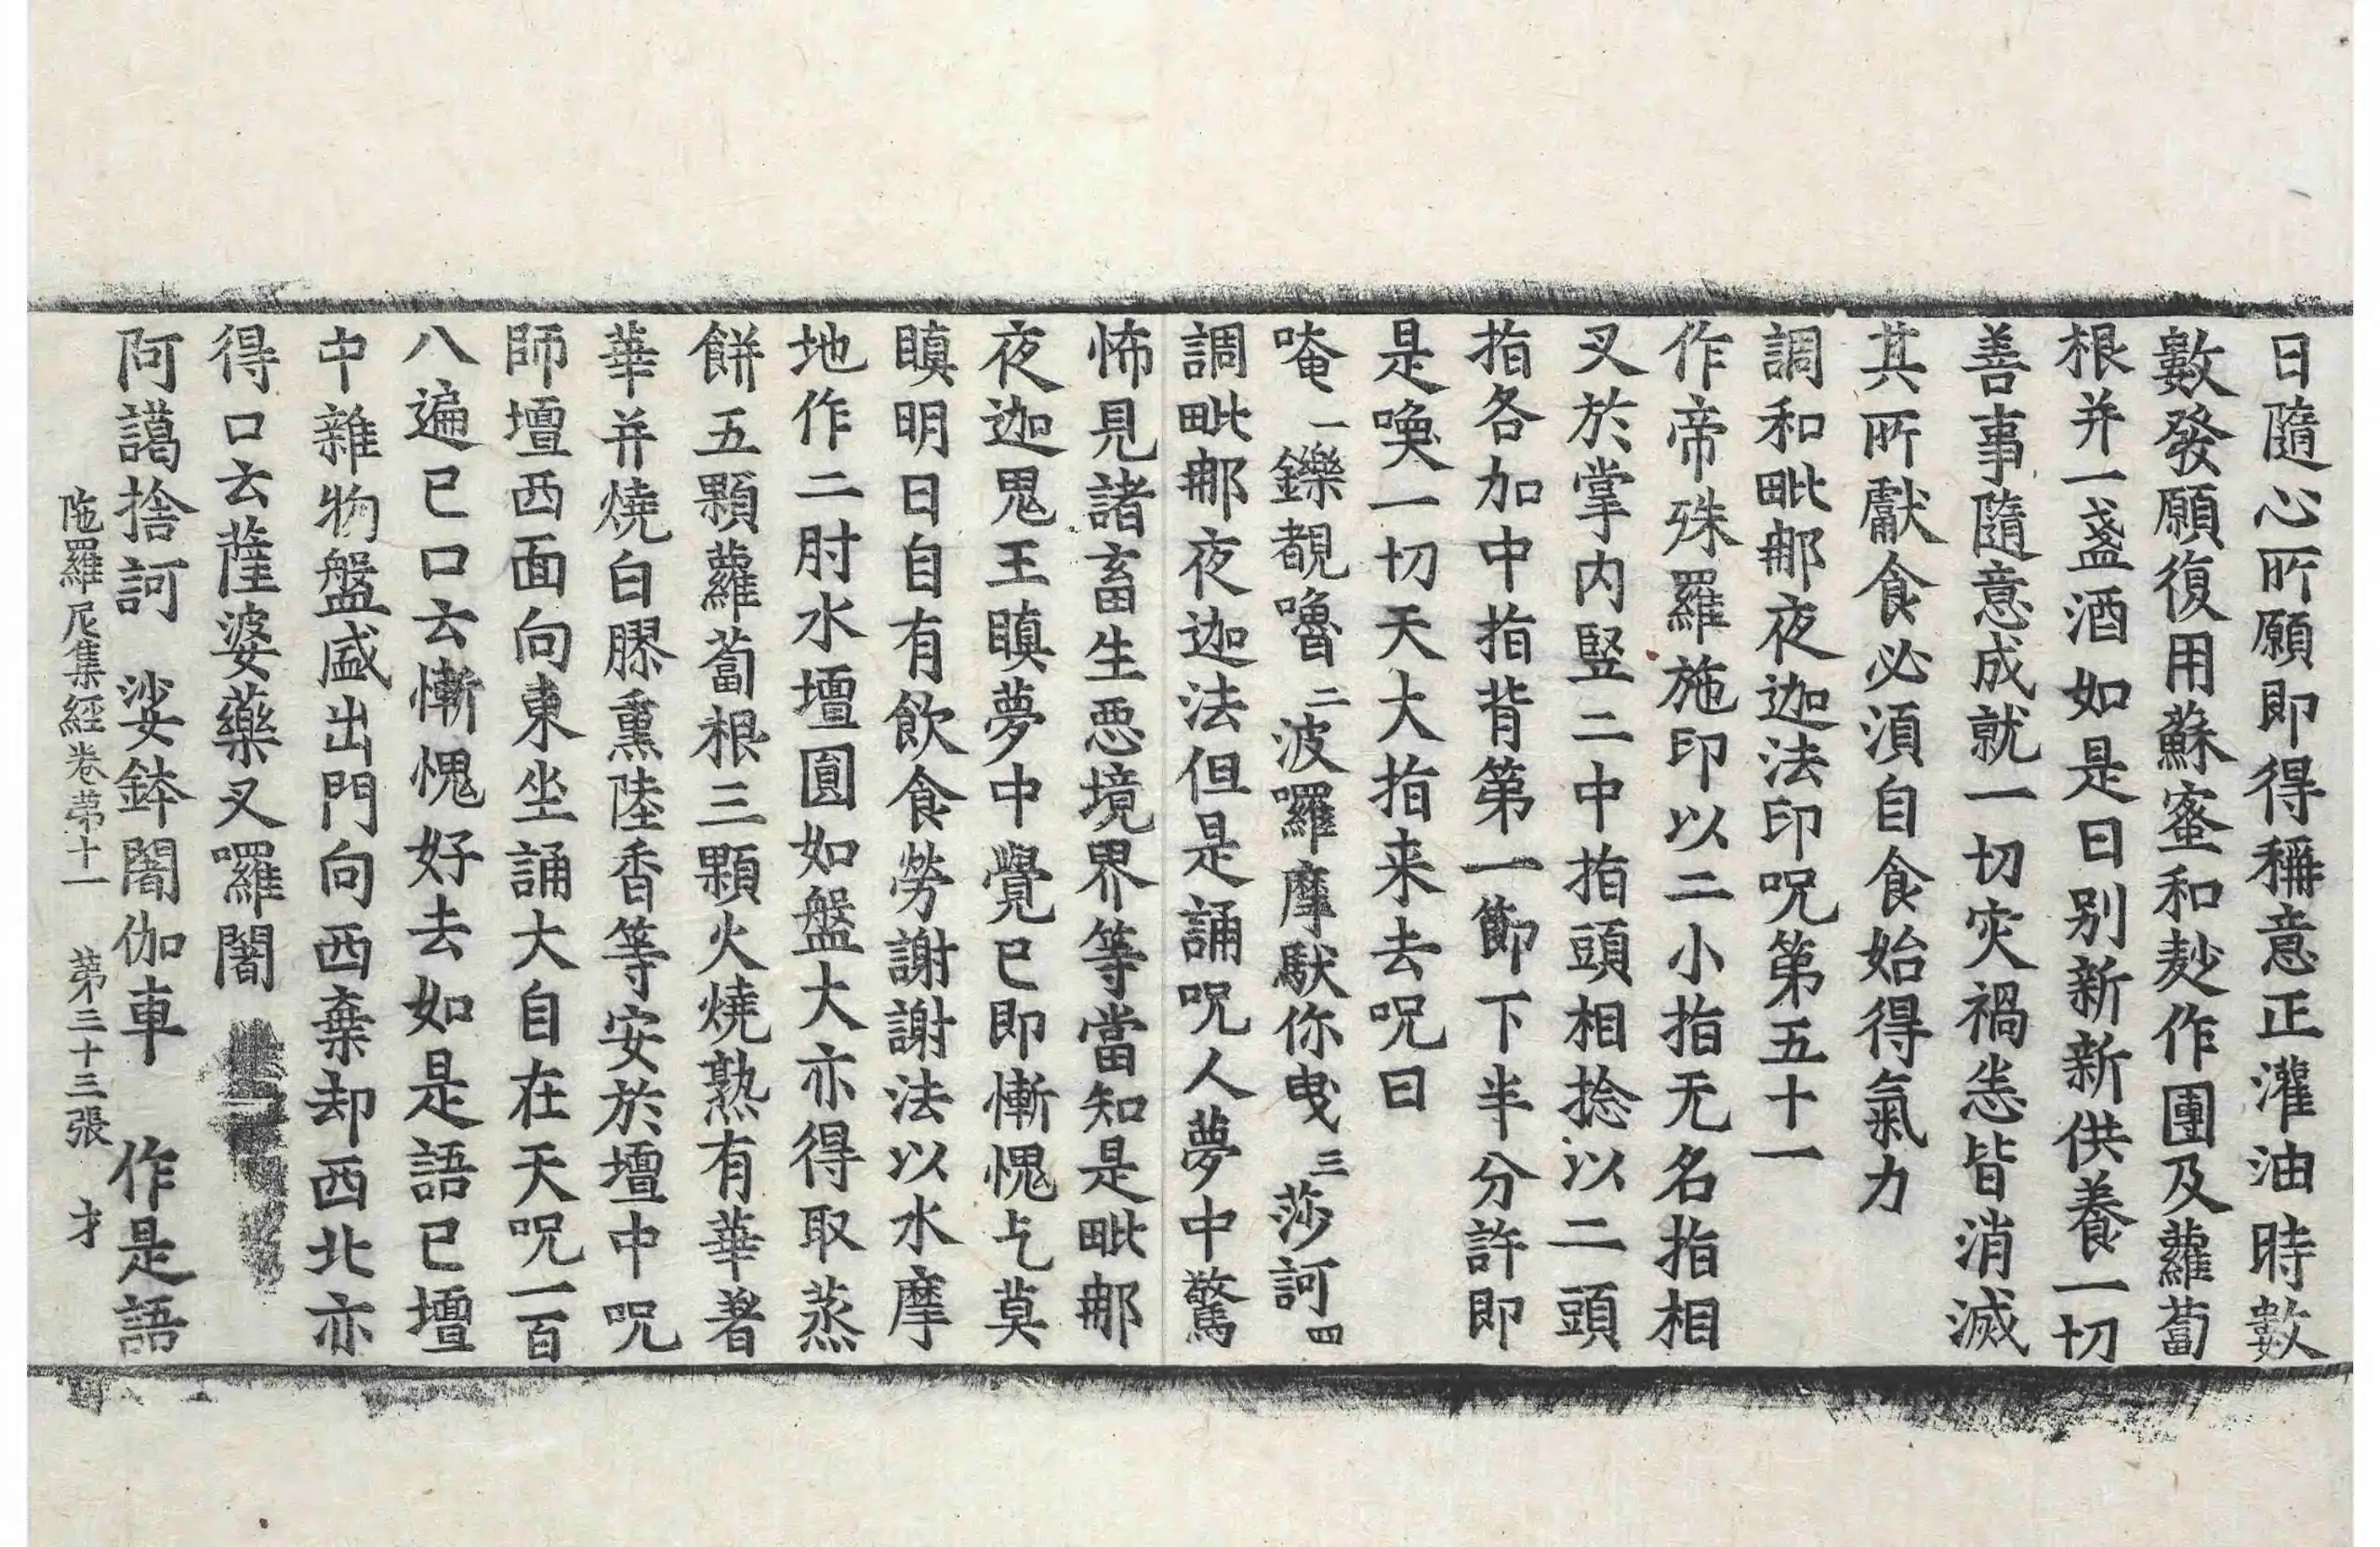 日隨心所願即得稱意正灌油時數
數發願復用蘇蜜和麨作團及蘿蔔
根并一盞酒如是日別新新供養一切
善事隨意成就一切灾禍恙皆消滅
其所獻食必湏自食始得氣力
調和毗那夜迦法印呪第五十一
作帝殊羅施印以二小指无名指相
叉於掌内竪二中指頭相捻以二頭
指各加中指背第一節下半分許即
是喚一切天大指来去呪曰
唵一鑠覩嚕二波囉摩馱你曳三莎訶四
調毗那夜迦法但是誦呪人夢中驚
怖見諸畜生惡境界等當知是毗那
夜迦鬼王瞋夢中覺已即慚愧乞莫
瞋明日自有飲食勞謝謝法以水摩
地作二肘水壇圓如盤大亦得取蒸
餅五顆蘿蔔根三顆火燒熟有華著
華并燒白膠薰陸香等安於壇中呪
師壇西面向東坐誦大自在天呪一百
八遍已口云慚愧好去如是語已壇
中雜物盤盛出門向西棄却西北亦
得口云薩婆藥叉囉闍
阿謁捨訶　娑鉢闍伽車　作是語
陁羅尼集經卷苐十一　苐三十三張　才